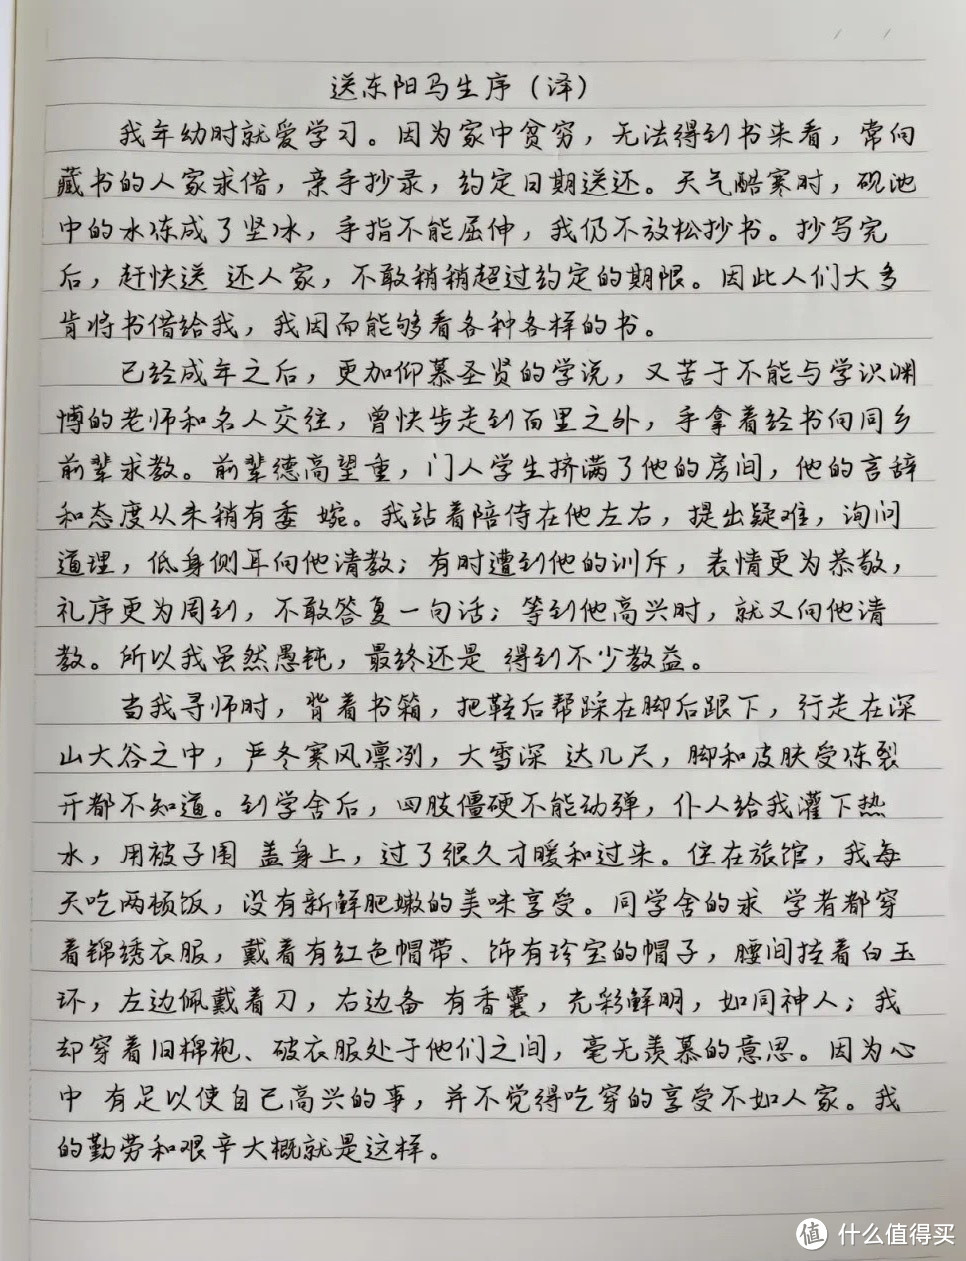 送东阳马生序（译）
我年幼时就爱学习。因为家中贫穷，无法得到书来看，常向
藏书的人家求借，亲手抄录，约定日期送还。天气酷寒时，砚池
中的水冻成了坚冰，手指不能屈伸，我仍不放松抄书。抄写完
后，赶快送 还人家，不敢稍稍超过约定的期限。因此人们大多
肯将书借给我，我因而能够看各种各样的书。
已经成年之后，更加仰慕圣贤的学说，又苦于不能与学识渊
博的老师和名人交往，曾快步走到百里之外，手拿着经书向同乡
前辈求教。前辈德高望重，门人学生挤满了他的房间，他的言辞
和态度从未稍有委 婉。我站着陪侍在他左右，提出疑难，询问
道理，低身侧耳向他请教；有时遭到他的训斥，表情更为恭敬，
礼序更为周到，不敢答复一句话；等到他高兴时，就又向他请
教。所以我虽然愚钝，最终还是 得到不少教益。
当我寻师时，背着书箱，把鞋后帮踩在脚后跟下，行走在深
山大谷之中，严冬寒风凛冽，大雪深 达几尺，脚和皮肤受冻裂
开都不知道。到学舍后，四肢僵硬不能动弹，仆人给我灌下热
水，用被子围 盖身上，过了很久才暖和过来。住在旅馆，我每
天吃两顿饭，没有新鲜肥嫩的美味享受。同学舍的求 学者都穿
着锦绣衣服，戴着有红色帽带、饰有珍宝的帽子，腰间挂着白玉
环，左边佩戴着刀，右边备 有香囊，光彩鲜明，如同神人；我
却穿着旧棉袍、破衣服处于他们之间，毫无羡慕的意思。因为心
中 有足以使自己高兴的事，并不觉得吃穿的享受不如人家。我
的勤劳和艰辛大概就是这样。
值 什么值得买